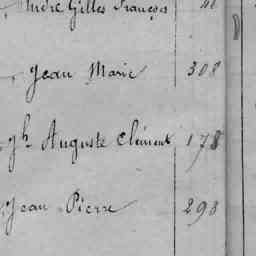 André Gilles François
Jean Marie 308
Jh Auguste Clément 178
Jean Pierre 298